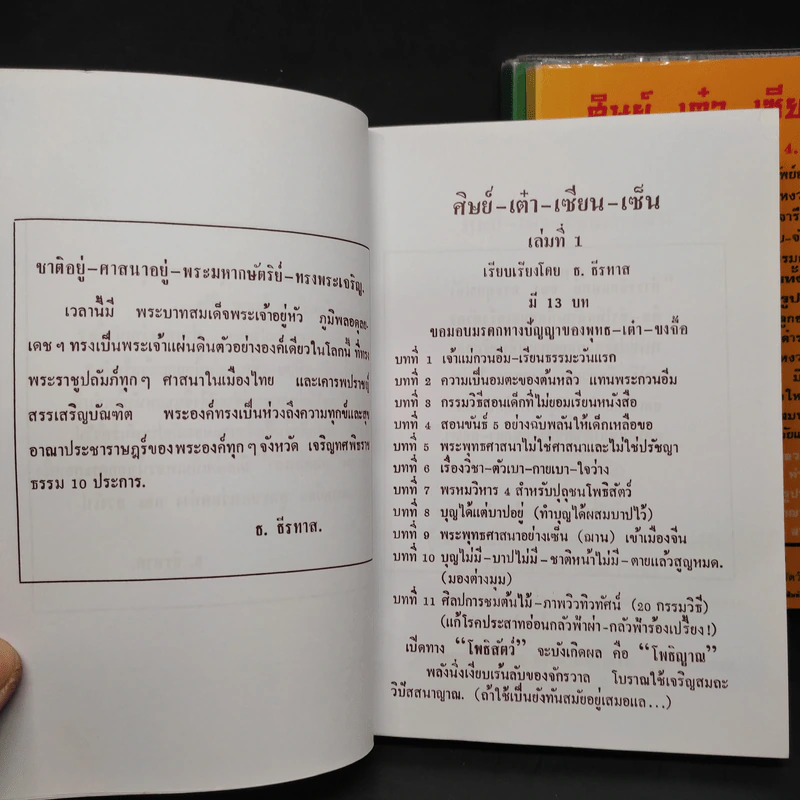 ชาติอยู่-ศาสนาอยู่-พระมหากษัตริย์-ทรงพระเจริญ.
เวลานี้มี พระบาทสมเด็จพระเจ้าอยู่หัว ภูมิพลอดุลย
เดชฯ ทรงเป็นพระเจ้าแผ่นดินตัวอย่างองค์เดียวในโลกนี้ ที่ทรง
พระราชูปถัมภ์ทุกๆ ศาสนาในเมืองไทย และเคารพปราชญ์
สรรเสริญบัณฑิต พระองค์ทรงเป็นห่วงถึงความทุกข์และสุข
อาณาประชาราษฎร์ของพระองค์ทุกๆ จังหวัด เจริญทศพิธราช
ธรรม 10 ประการ.
ธ. ธีรทาส.
ศิษย์-เต๋า-เซียน-เซ็น
เล่มที่ 1
เรียบเรียงโดย ธ. ธีรทาส
มี 13 บท
ขอมอบมรดกทางปัญญาของพุทธ-เต๋า-ขงจื๊อ
บทที่ 1 เจ้าแม่กวนอิม-เรียนธรรมะวันแรก
บทที่ 2 ความเป็นอมตะของต้นหลิว แทนพระกวนอิม
บทที่ 3 กรรมวิธีสอนเด็กที่ไม่ยอมเรียนหนังสือ
บทที่ 4 สอนขันธ์ 5 อย่างฉับพลันให้เด็กเหลือขอ
บทที่ 5 พระพุทธศาสนาไม่ใช่ศาสนาและไม่ใช่ปรัชญา
บทที่ 6 เรื่องวิชา-ตัวเบา-กายเบา-ใจว่าง
บทที่ 7 พรหมวิหาร 4 สำหรับปุถุชนโพธิสัตว์
บทที่ 8 บุญได้แต่บาปอยู่ (ทำบุญได้ผสมบาปไว้)
บทที่ 9 พระพุทธศาสนาอย่างเซ็น (ฌาน) เข้าเมืองจีน
บทที่ 10 บุญไม่มี-บาปไม่มี-ชาติหน้าไม่มี-ตายแล้วสูญหมด.
(มองต่างมุม)
บทที่ 11 ศิลปการชมต้นไม้-ภาพวิวทิวทัศน์ (20 กรรมวิธี)
(แก้โรคประสาทอ่อนกลัวฟ้าผ่า-กลัวฟ้าร้องเปรี้ยง!)
เปิดทาง “โพธิสัตว์” จะบังเกิดผล คือ “โพธิญาณ”
พลังนิ่งเงียบเร้นลับของจักรวาล โบราณใช้เจริญสมถะ
วิปัสสนาญาณ. (ถ้าใช้เป็นยังทันสมัยอยู่เสมอแล...)
ศิษย์ เต๋า